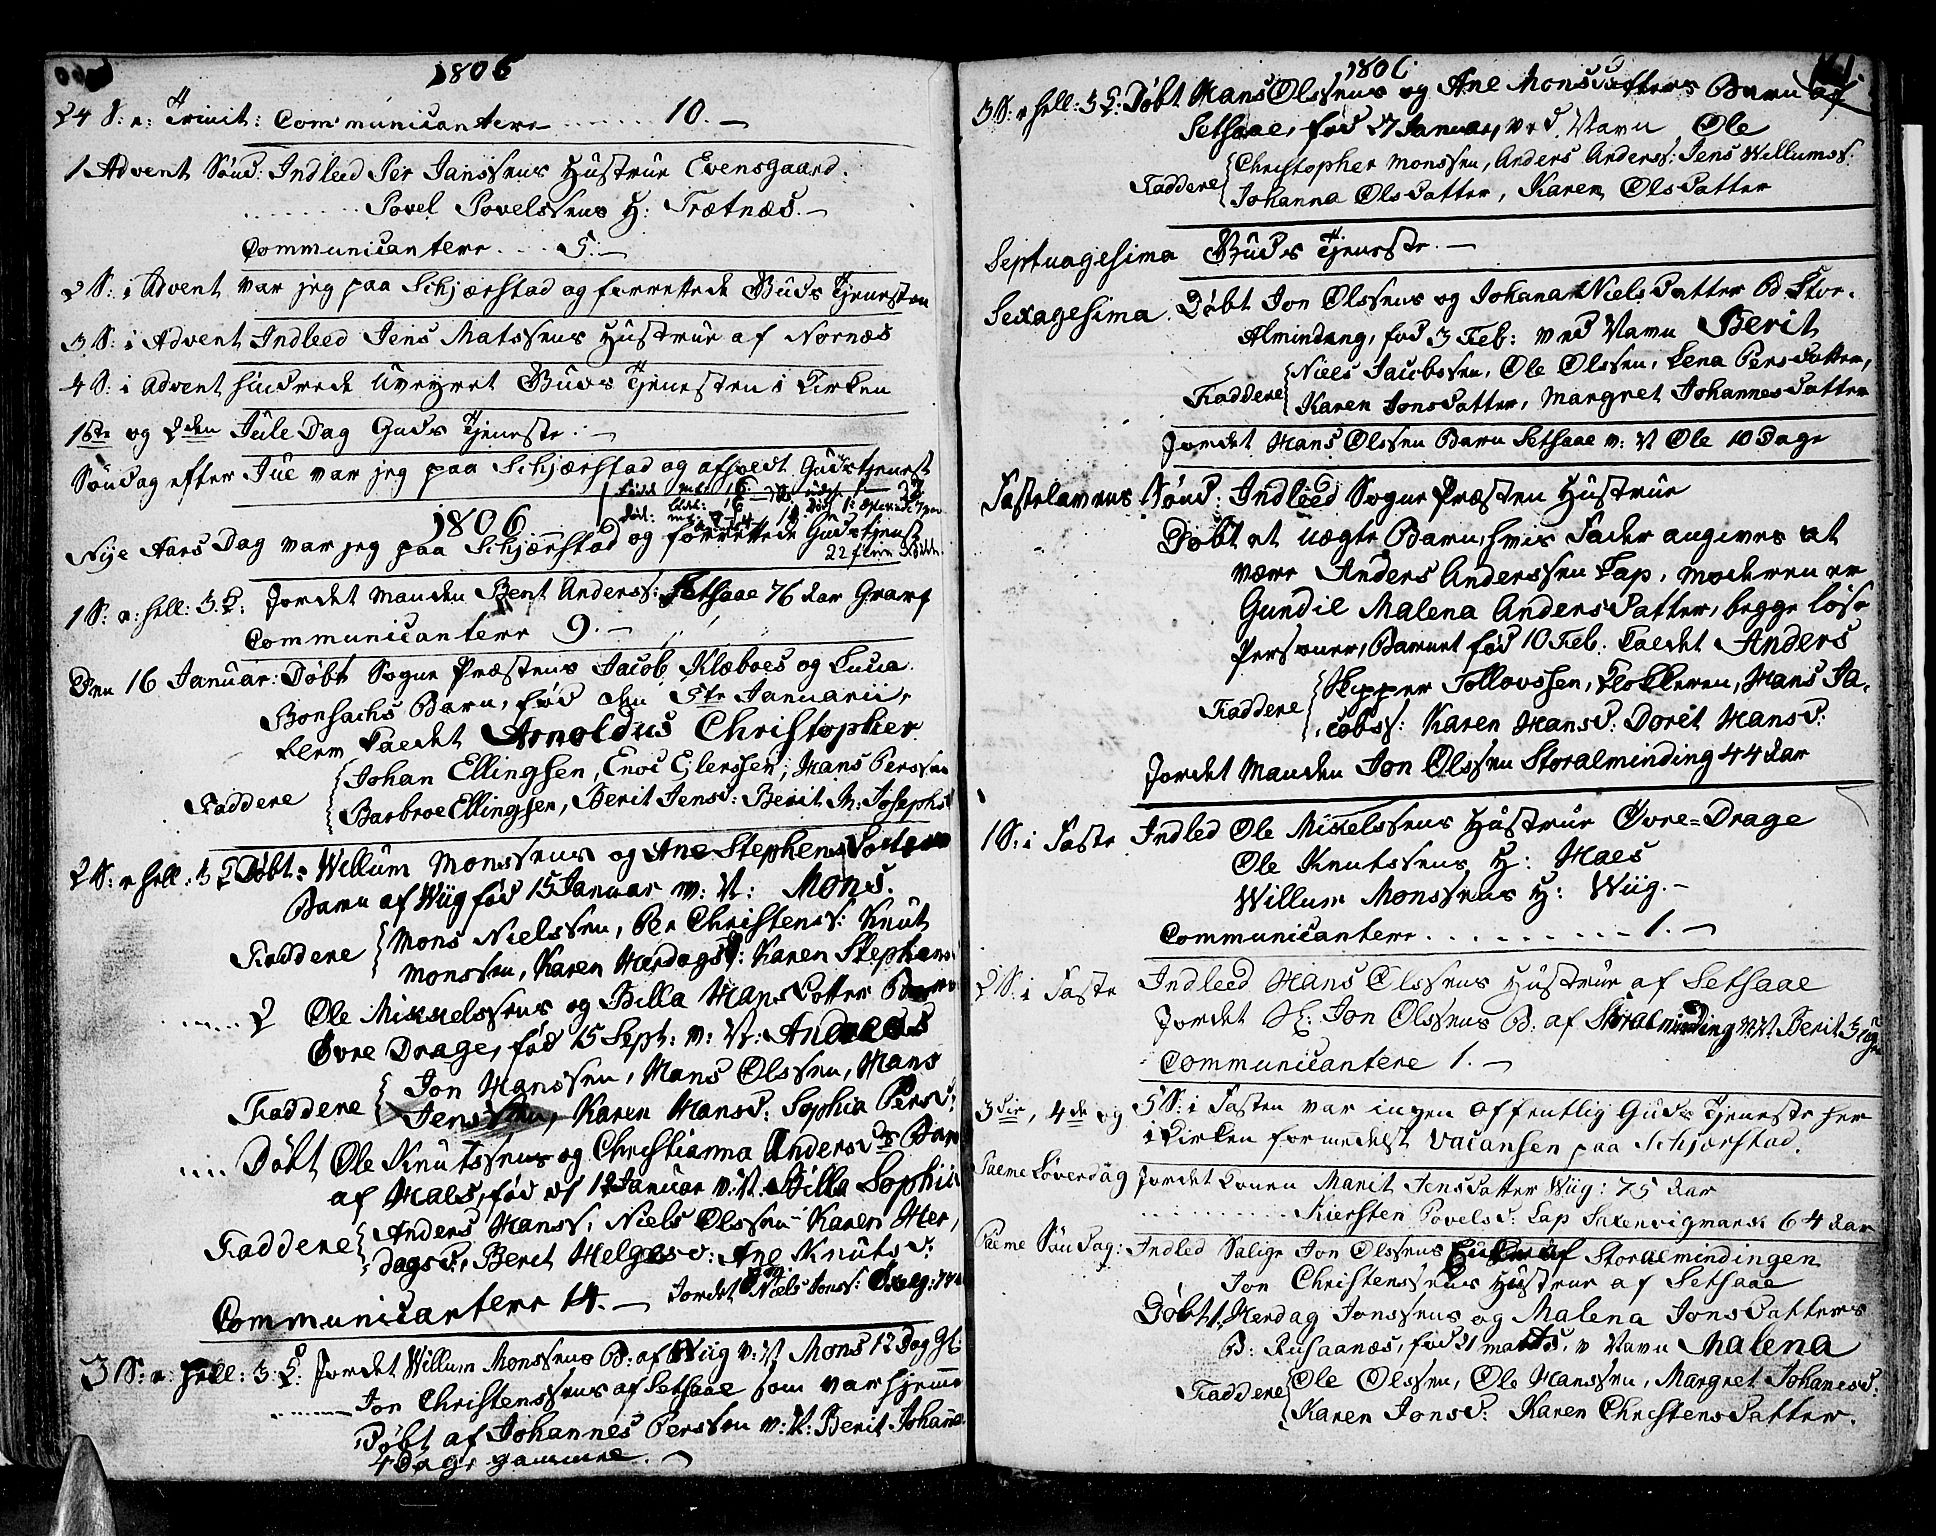 1806
24 S: e: Trinit: Communicantere 10.
1 Advent Sønd: Indleed Per Janssens Hustrue Evensgaard.
Povel Povelssens H: Trætnæs.
Communicantere 5.
2 S: i Advent var jeg paa Schjærstad og forrettede Guds Tjenesten
3 S: i Advent Indleed Jens Matssens Hustrue af Nornæs
4 S: i Advent hindrede Uveyret Guds Tjenesten i Kirken
1ste og 2den Jule Dag Guds Tjeneste.
Søndag efter Jue var jeg paa Schjærstad og afholdt Gudstjenest
1806
Nye Aars Dag var jeg paa Schjærstad og forrettede Gudstjenst
22 flere
1 S: e: hell: 3 K: Jordet Manden Bent Anderss: Setsaae 76 Aar Graf
Communicantere 9.
Den 16 Januar: Døbt Sogne Præstens Jacob Klæboes og Lucia
Bonsachs Barn, fød den 5te Januarii,
blev kaldet Arnoldus Christopher
Faddere Johan Ellingsen, Enoc Ejlerssen, Hans Perssen
Barbroe Ellingsen, Berit Jensd: Berit M: Josephs
2 S: e hell: 3 K Døbt: Willum Monssens og Ane Stephens Datters
Barn af Wiig fød 15 Januar v: N: Mons.
Faddere Mons Nielssen, Per Christens: Knut
Monssen, Karen Herdagsd: Karen Stephens
2 Ole Mikkelssens og Billa Hans Datter Barn
Øvre Drage, fød 15 Sept: v: N: Andreas
Faddere Jon Hanssen, Hans Olssen, Hans
Jenssen, Karen Hansd: Sophia Persd:
Døbt Ole Knutssens og Christianna Andersd Barn
af Maes, fød d 12 Januar v: N. Billa Sophia
Faddere Anders Hanss: Niels Olssen Karen Her,
dagsd:, Berit Helgesd: Ane Knutsd:
Communicantere 14. Jordet Niels Jonss:
3 S: e: hell: 3 K: Jordet Willum Monssens B: af Wiig v: N Mons 12 Dag
Jon Christenssens af Setsaae som var hjemme
Døbt af Johannes Perssen v: N: Berit Johanna
4 Dage gammel.
1806
3 S: e hell: 3 K: Døbt Hans Olssens og Ane Monsdatters Barn af
Setsaae, fød 27 Januar, ved Navn Ole
Faddere Christopher Monssen, Anders Anderss: Jens Willumss:
Johanna Olsdatter, Karen Olsdatter
Septuagesima Guds Tjeneste.
Sexagesima Døbt Jon Olssens og Johana Nielsdatter B Stor.
Almindeng, fød 3 Feb: ved Navn Berit
Faddere Niels Jacobssen, Ole Olssen, Lena Persdatter,
Karen Jonsdatter, Margret Johannesdatter
Jordet Hans Olssen Barn Setsaae v: N Ole 10 Dage
Fastelavens Sønd: Indleed Sogne Præsten Hustrue
Døbt et uægte Barn, hvis Fader angives at
være Anders Anderssen Lap, moderen er
Gundil Malena Andersdatter, begge løse
Personer, Barnet fød 10 Feb. kaldet Anders
Faddere Skipper Tollovssen, Klokkeren, Hans Ja,
cobss: Karen Hansd: Doret Hansd:
Jordet Manden Jon Olssen Storalminding 44 Aar
1 S: i Faste Indled Ole Mikelssens Hustrue Øvre-Drage
Ole Knutssens H: Maes
Willum Monssens H: Wiig.
Communicantere 1.
2 S: i Faste Indleed Hans Olssens Hustrue af Setsaae
Jordet Jon Olssens B: af Storalminding v: N: Berit 3 Uger
Communicantere 1.
3die, 4de og 5 S: i Fasten var ingen offentlig Guds Tjeneste her
i Kirken formedelst Vacansen paa Schjørstad.
Palme Løverdag Jordet Konen Marit Jensdatter Wiig: 75 Aar
Kiersten Povelsd: Lap Saxenvigmark 64 Aar
Palme Søndag: Indled Salige Jon Olssens Enke af Storalmindingen
Jon Christenssens Hustrue af Setsaae
Døbt 1, Herdag Jonssens og Malena Jonsdatters
B: Rusaanæs, fød 21 marts, v Navn Malena
Faddere Ole Olssen, Ole Hanssen, Margret Johanesd:
Karen Jonsd: Karen Christensdatter.